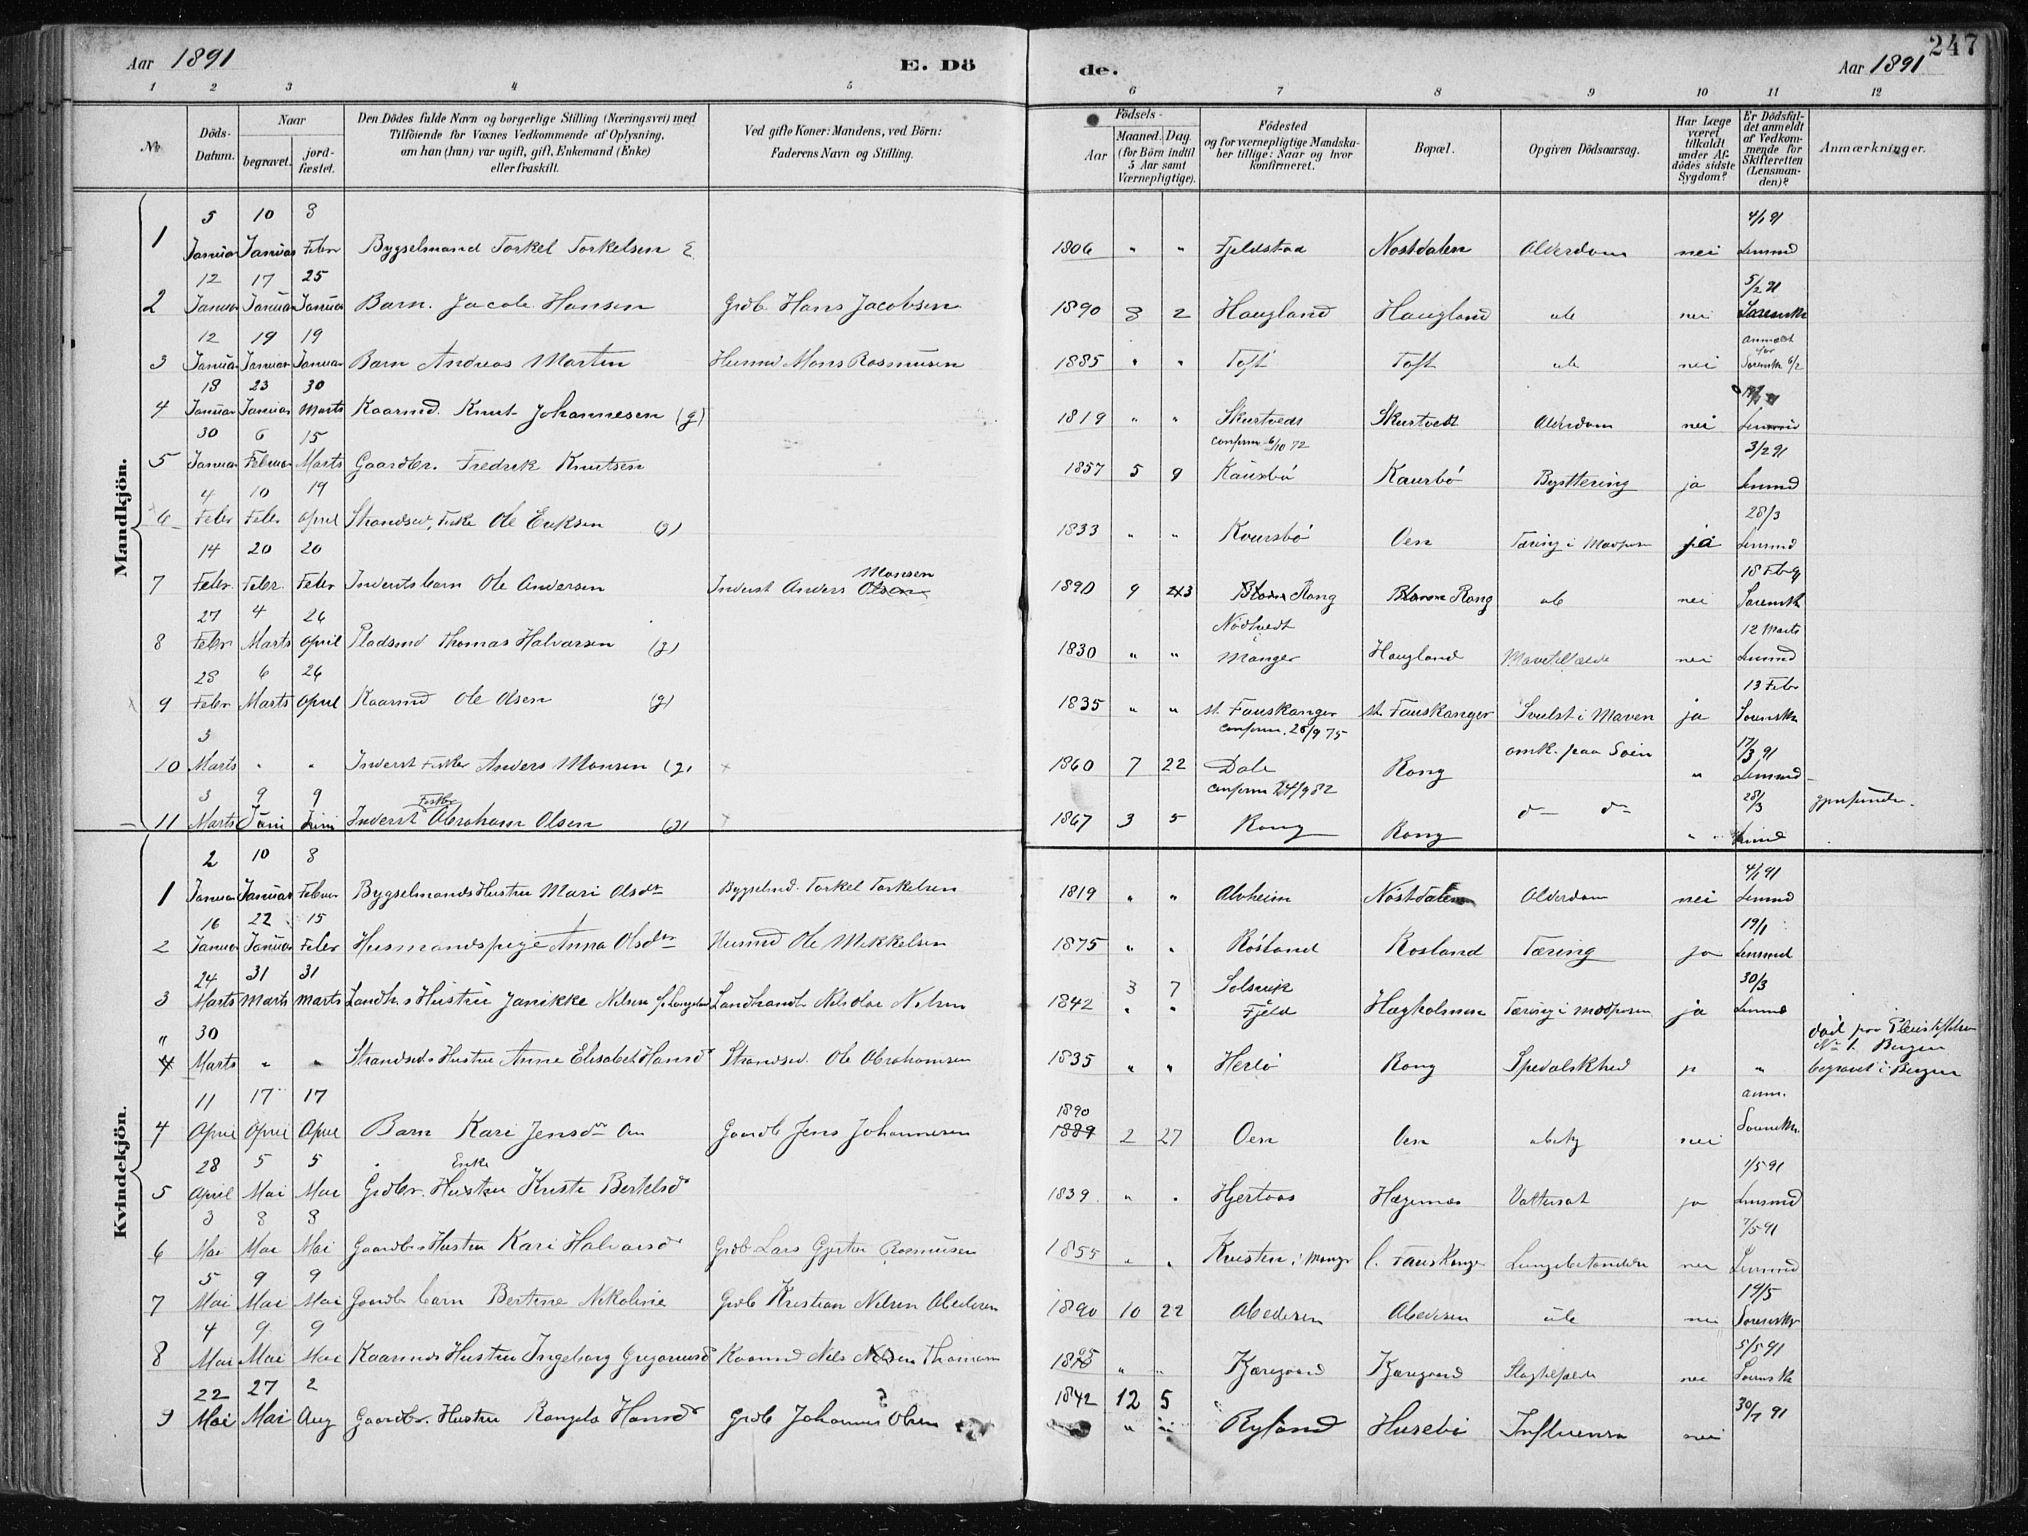 Aar 1891
E. Dö
de.
Aar 1891
247
1 2 3 4 5 6 7 8 9 10 11 12
No
Döds-Datum.
Naar
begravet.
jord-fæstet.
Den Dödes fulde Navn og borgerlige Stilling (Næringsvei) med
Tilföiende for Voxnes Vedkommende af Oplysning,
om han (hun) var ugift, gift, Enkemand (Enke)
eller fraskilt.
Ved gifte Koner: Mandens, ved Börn:
Faderens Navn og Stilling.
Födsels-
Aar
Maaned. Dag.
(for Börn indtil
5 Aar samt
Værnepligtige).
Födested
og for værnepligtige Mandska-
ber tillige: Naar og hvor
konfirmeret.
Bopæl.
Opgiven Dödsaarsag.
Har Læge
været
tilkaldt
under Af-
dödes sidste
Sygdom?
Er Dödsfal-
det anmeldt
af Vedkom-
mende for
Skifteretten
(Lensman-
den)?
Anmærkninger.
Mandkjön.
1 5 Januar 10 Januar 3 Febr Bygselmand Torkel Torkelsen E 1806 " " Fjeldstad Nostdalen Alderdom nei 4/1 91 Lensmd
2 12 Januar 17 Januar 25 Januar Barn. Jacob Hansen Grdb Hans Jacobsen 1890 8 2 Haugland Haugland ub nei 5/2 91 Sorenskr
3 12 Januar 19 Januar 19 Januar Barn Andreas Martin Husmd Mons Rasmusen 1885 " " Toft Toft ub nei anmeldt for Sorenskr 6/2
4 18 Januar 23 Januar 30 Marts Kaarmd. Knut Johannesen (g) 1819 " " Skurtvedt Skurtvedt Alderdom nei Lensmd
5 30 Januar 6 Februar 15 Marts Gaardbr. Fredrik Knutsen 1857 5 9 confirm 6/10 72 Kausbö Kaursbö Brysttæring ja 3/2 91 Lensmd
6 4 Febr 10 Febr 19 April Strandsid. Fisker Ole Eriksen (g) 1833 " " Kvursbö Oen Tæring i Mavposen ja 28/3 Lensmd
7 14 Febr 20 Febr. 20 Febr Inderstsbarn Ole Andersen Inderst Anders Olsen Monsen 1890 9 23 Rong Rong ub nei 18 Feb 91 Sorenskr
8 27 Febr 4 Marts 26 April Pladsmd Thomas Halvorsen (g) 1830 " " Nödtvedt i Manger Haugland Mavetilfælde nei 12 Marts Lensmd
9 28 Febr 6 Marts 26 April Kaarmd Ole Olsen (g) 1835 " " st. Fauskanger st. Fauskanger Svulst i Maven ja 13 Febr Sorenskr
10 3 Marts " " Inderst Fisker Anders Monsen (g) 1860 7 22 confirm. 26/9 75 Dale Rong omk. paa Söen " 17/3 91 Lensmd
11 3 Marts 9 Juni 9 Juni Inderst Fisker Abraham Olsen (g) 1867 3 5 confirm 24/9 82 Rong Rong d— d— " 28/3 Lensmd gjenfunden.
Kvindekjön.
1 2 Januar 10 Januar 8 Februar Bygselmands Hustru Mari Olsdr Bygselmd. Torkel Torkelsen 1819 " " Alvheim Nöstdalen Alderdom nei 4/1 91 Lensmd
2 16 Januar 22 Januar 15 Febr Husmandspige Anna Olsdr Husmd Ole Mikkelsen 1875 " " Rösland Rosland Tæring ja 19/1 Lensmd
3 24 Marts 31 Marts 31 Marts Landh.s Hustru Janikke Nilsen Landhandl. Nils Olai Nilsen 1842 3 7 Solsvik i Fjeld Hægholmen Tæring i Madposen ja 30/3 Lensmd
4 30 Marts " " Strandsid.s Hustru Anne Elisabet Hansdr Strandsid Ole Abrahamsen 1835 " " Herlö Rong Spedalskhed ja " död paa Pleiestiftelsen No 1. Bergen begravet i Bergen
4 11 April 17 April 17 April Barn Kari Jensdr Oen Gaardb Jens Johannesen 1889 1890 2 27 Oen Oen ubekj nei anm. Sorenskr.
5 28 April 5 Mai 5 Mai Grdbr. Hustru Enke Kristi Bertelsdr 1839 " " Hjertaas Hægernæs Vattersot ja 1/5 91 Lensmd
6 3 Mai 8 Mai 8 Mai Gaardb.s Hustru Kari Halvorsdr Grdb Lars Gjertin Rasmusen 1855 " " Kvisten i Mangr l. Fauskanger Lungebetændelse nei 7/5 91 Lensmd
7 5 Mai 9 Mai 9 Mai Gaardb barn Bertine Nikoline Grdb Kristian Nilsen Abedisen 1890 10 22 Abedisen Abedisen ub nei 14/5 Sorenskr
8 4 Mai 9 Mai 9 Mai Kaarmds Hustru Ingeborg Gregoriusdr Kaarmd Nils Nilsen Thomasen " " Kjærgaard Kjærgaard Slagtilfælde nei 5/5 91 Sorenskr
9 22 Mai 27 Mai 2 Aug Gaardbr. Hustru Rangela Hansdr Grdb Johannes Olsen 1842 12 5 Ryland Husebö Influensa nei 30/7 91